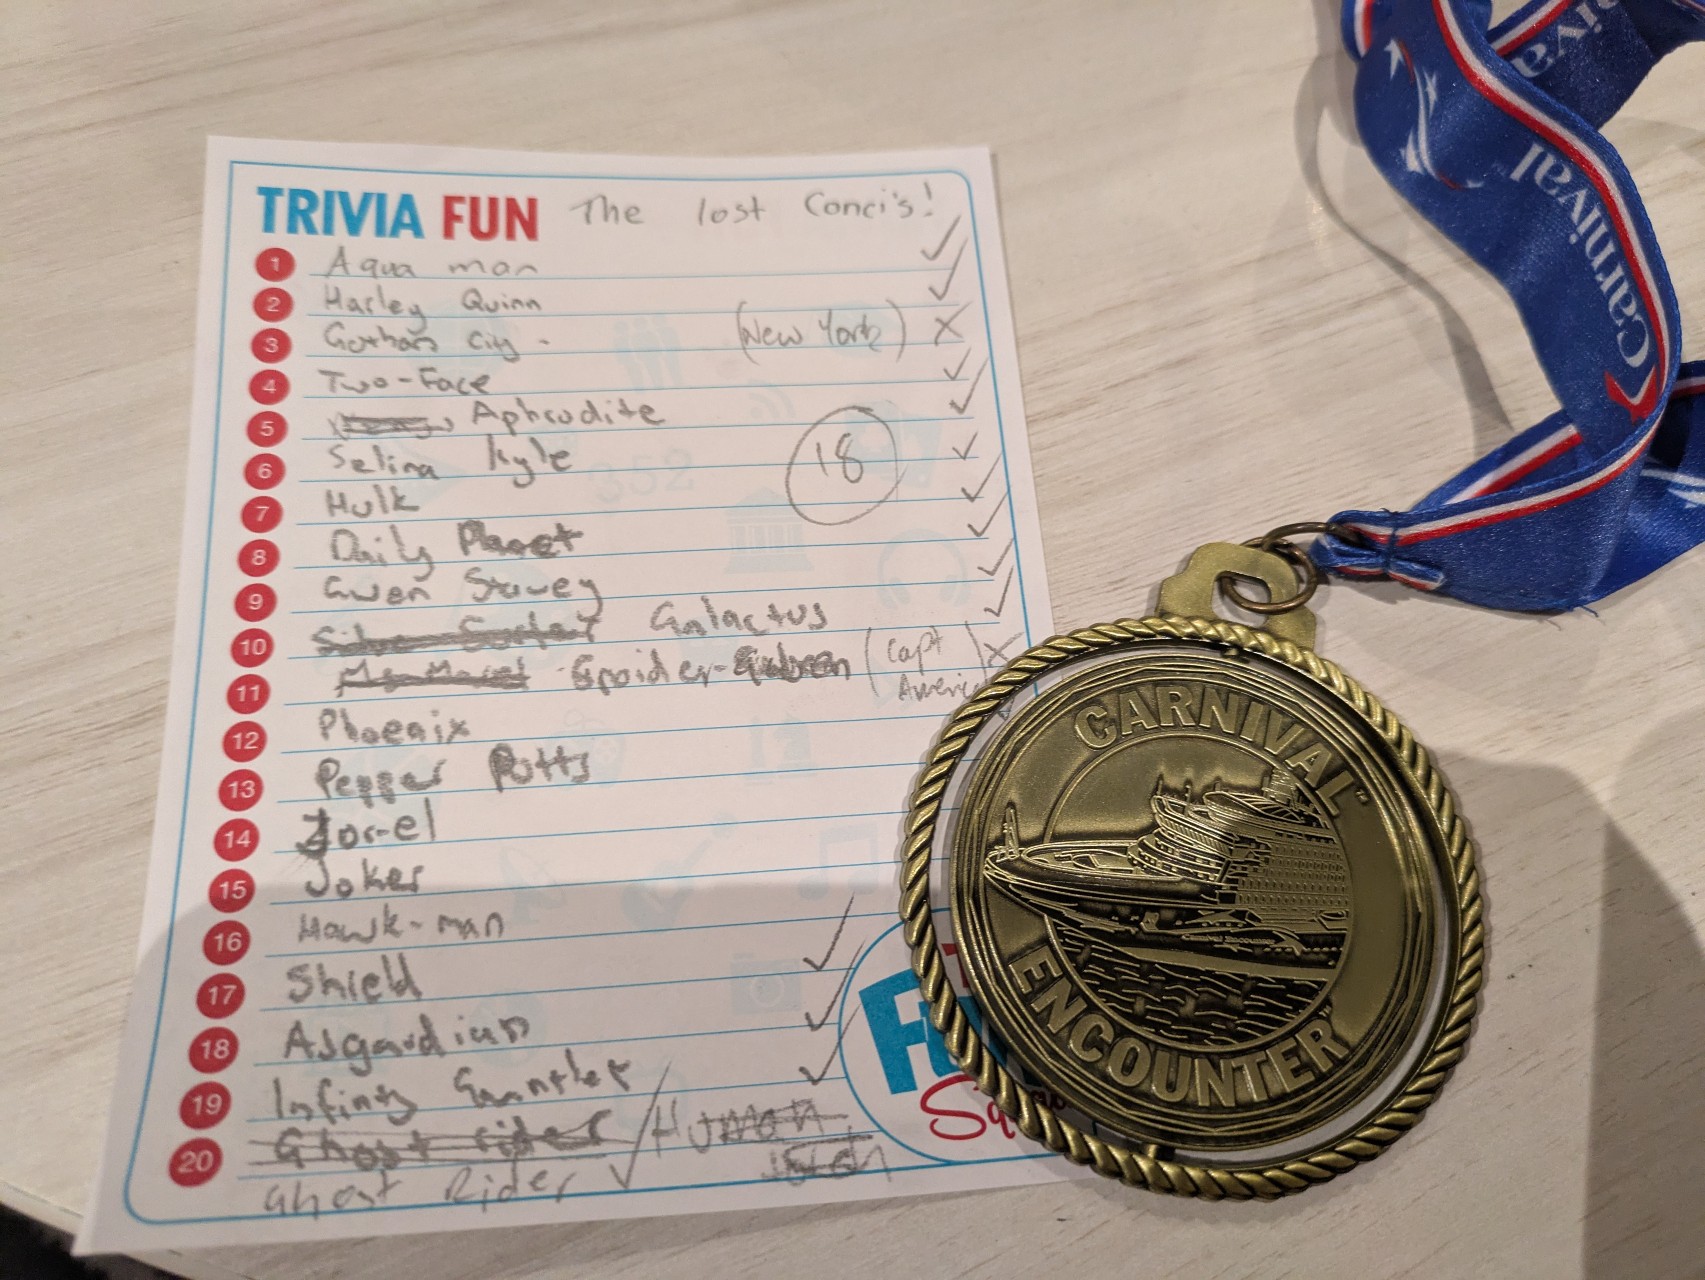 TRIVIA FUN The lost Conci's!
1 Aqua man
2 Harley Quinn
3 Gotham City - (New York)
4 Two-Face
5 Aphrodite
6 Selina Kyle
18
7 Hulk
8 Daily Planet
9 Gwen Stacey
10 Silver Surfer Galactus
11 Ms Marvel Spider- (Capt
12 Phoenix
13 Pepper Potts
14 Jor-el
15 Joker
16 Hawk-man
17 Shield
18 Asgardian
19 Infinity Gauntlet
20 Ghost rider Human
Ghost Rider
CARNIVAL™
ENCOUNTER
Carnival